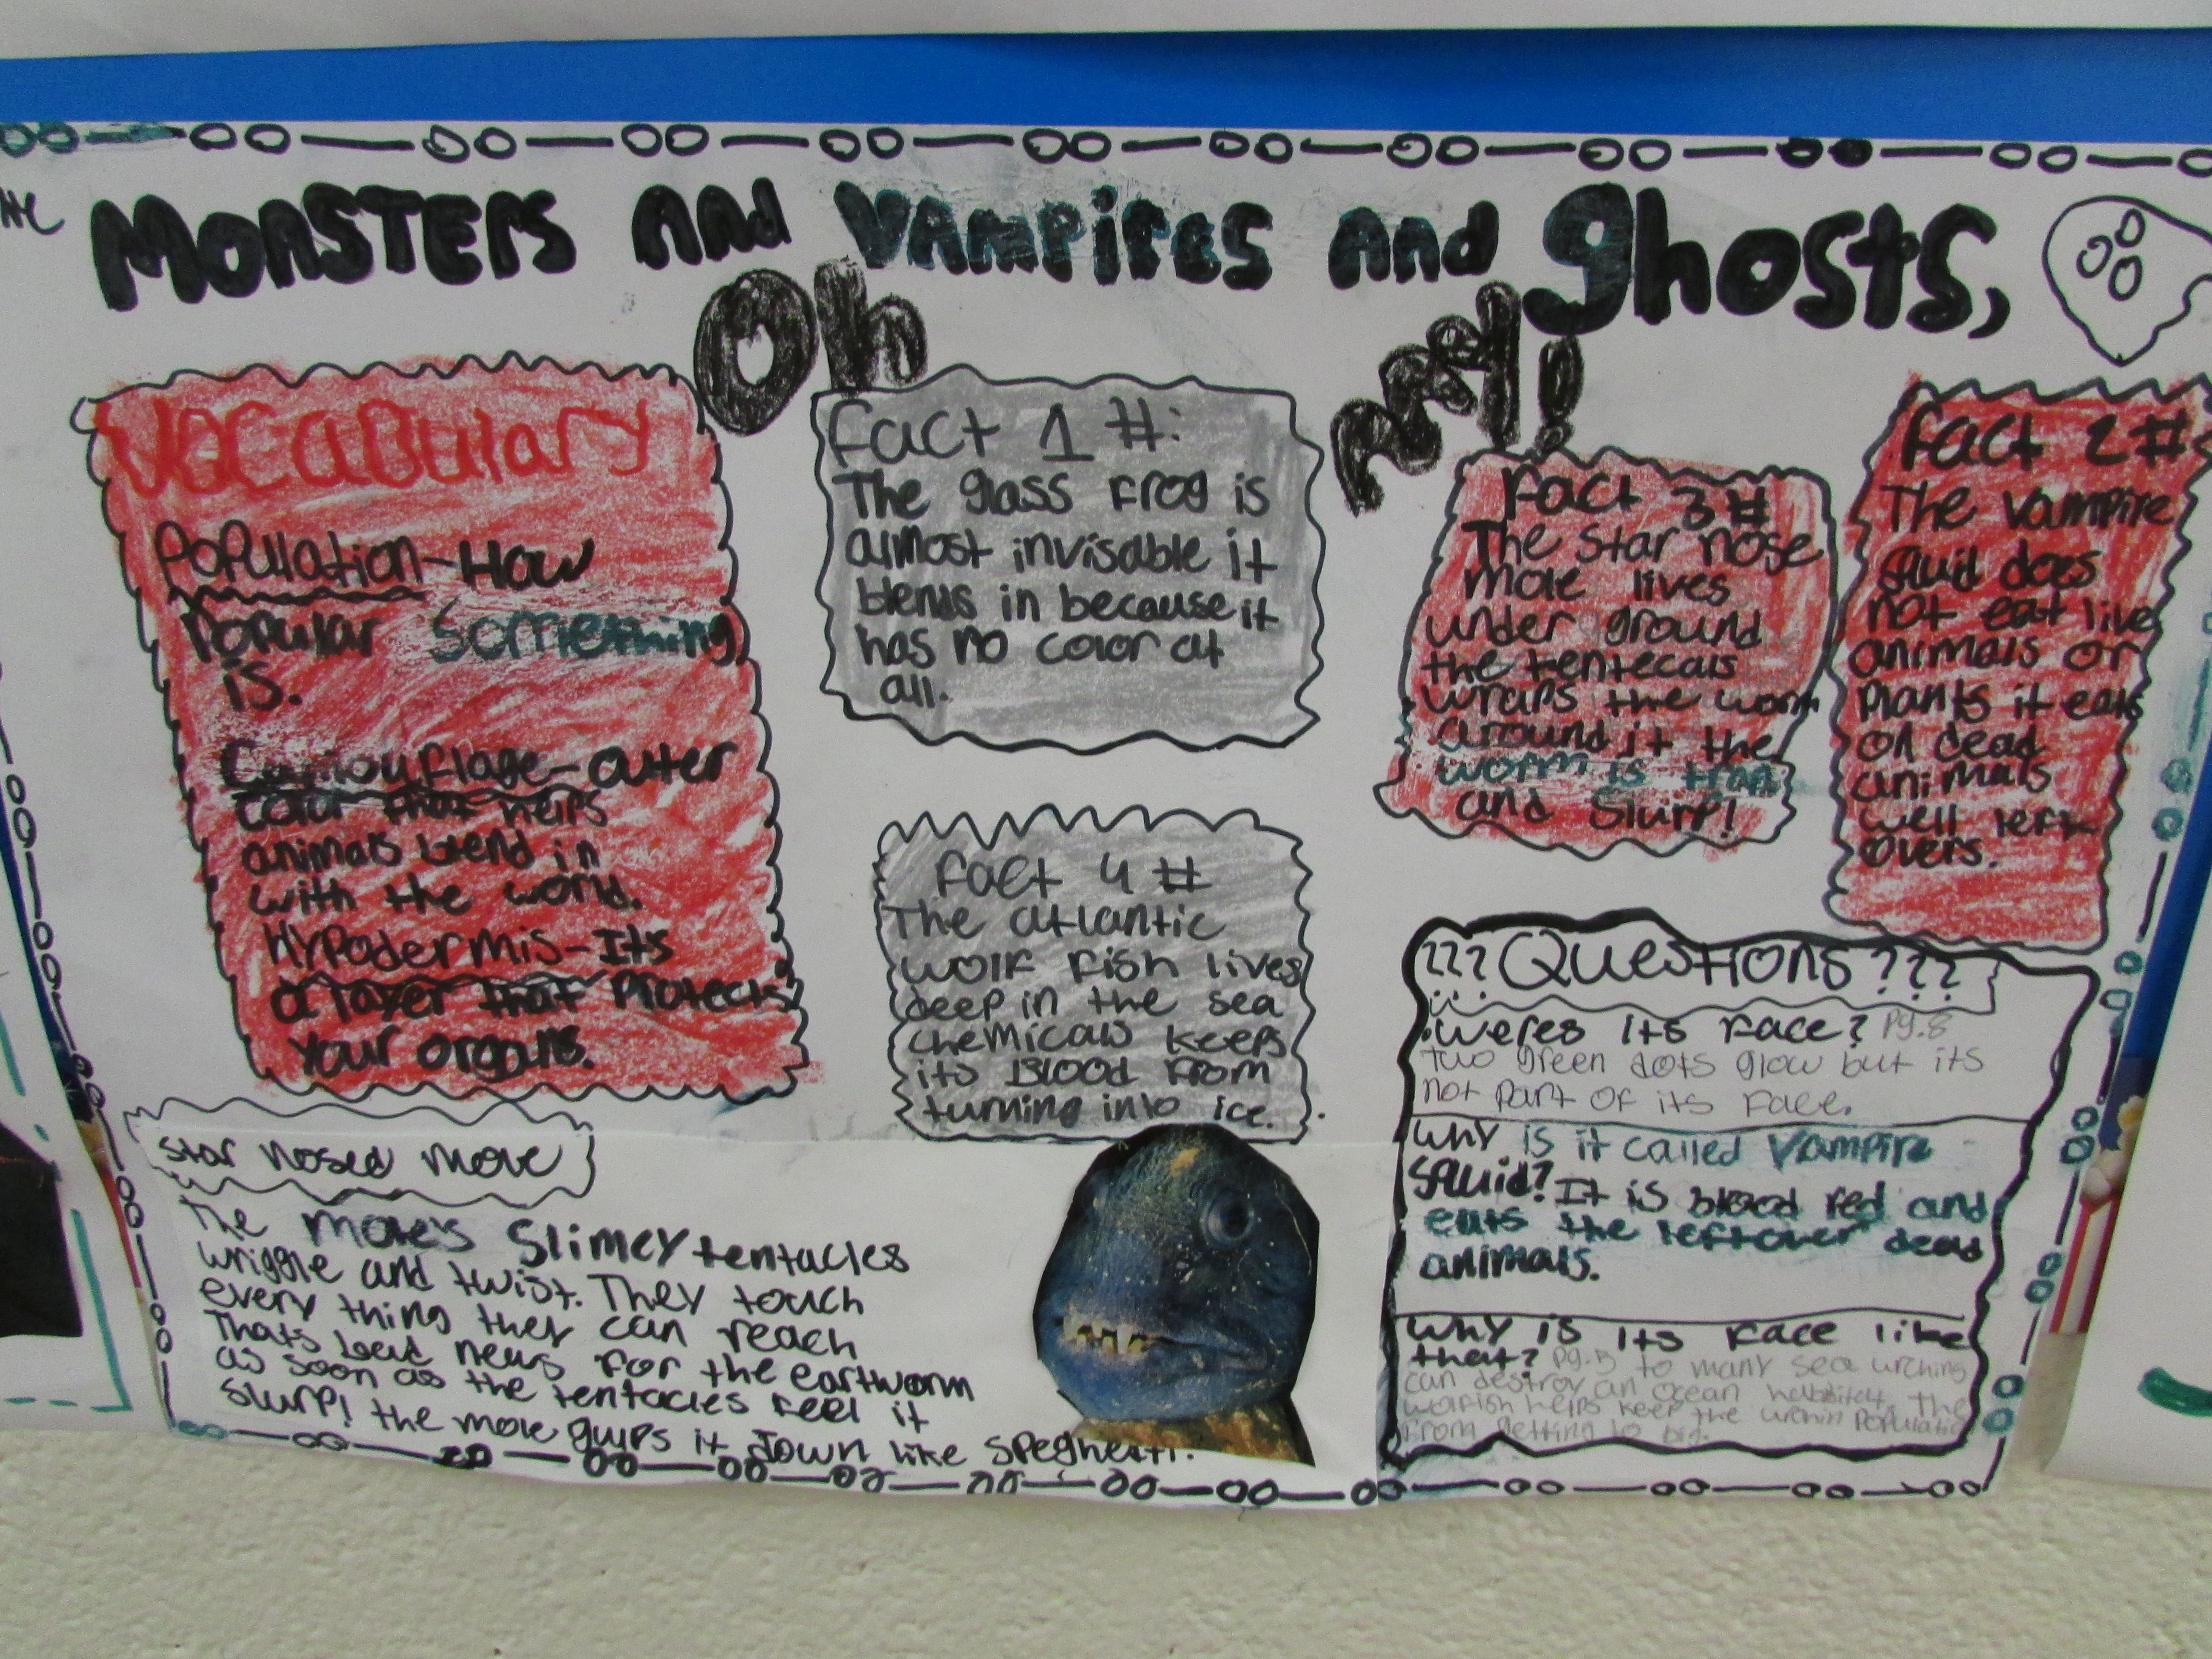 Monsters and Vampires and Ghosts,
Oh My!
Vocabulary
Population-How
Popular Something
is.
Camouflage-outer
color that helps
animals blend in
with the world.
Hypodermis-Its
a layer that Protects
Your organs.
Fact 1 #:
The glass frog is
almost invisable it
blends in because it
has no color at
all.
Fact 3 #
The Star nose
mole lives
under ground
the tentecals
wraps the worm
around it the
worm is trap
and Slurp!
Fact 2 #
The vampire
squid does
not eat live
animals or
Plants it eats
on dead
animals
well left
overs.
Fact 4 #
The atlantic
wolf fish lives
deep in the sea
chemicals keeps
its Blood from
turning into ice.
??? Questions???
Weres its face? Pg.8
two green dots glow but its
not part of its face.
Why is it called Vampire
Squid? It is blood red and
eats the leftover dead
animals.
Why is its face like
that? Pg. to many sea urchins
can destroy an ocean habbitat. The
wolfish helps keep the urchin Populatio
from getting to big.
star nosed move
The moles Slimey tentacles
wriggle and twist. They touch
every thing they can reach
Thats bad news for the eartworm
as soon as the tentacles feel it
Slurp! the mole gulps it down like Speghetti.